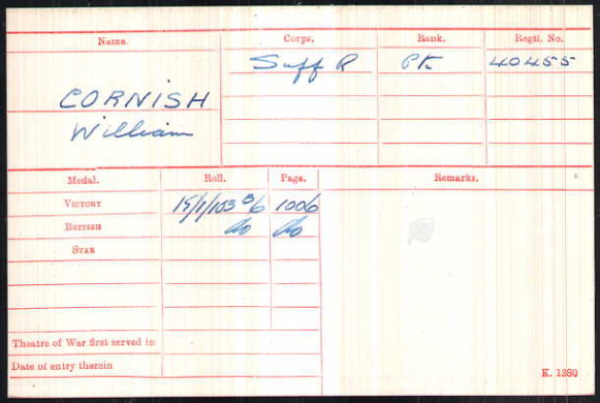 Name. Corps. Rank. Regtl. No.
Suff R Pte 40455
CORNISH
William
Medal. Roll. Page. Remarks.
VICTORY 1006
BRITISH do do
STAR
Theatre of War first served in
Date of entry therein
K. 1380